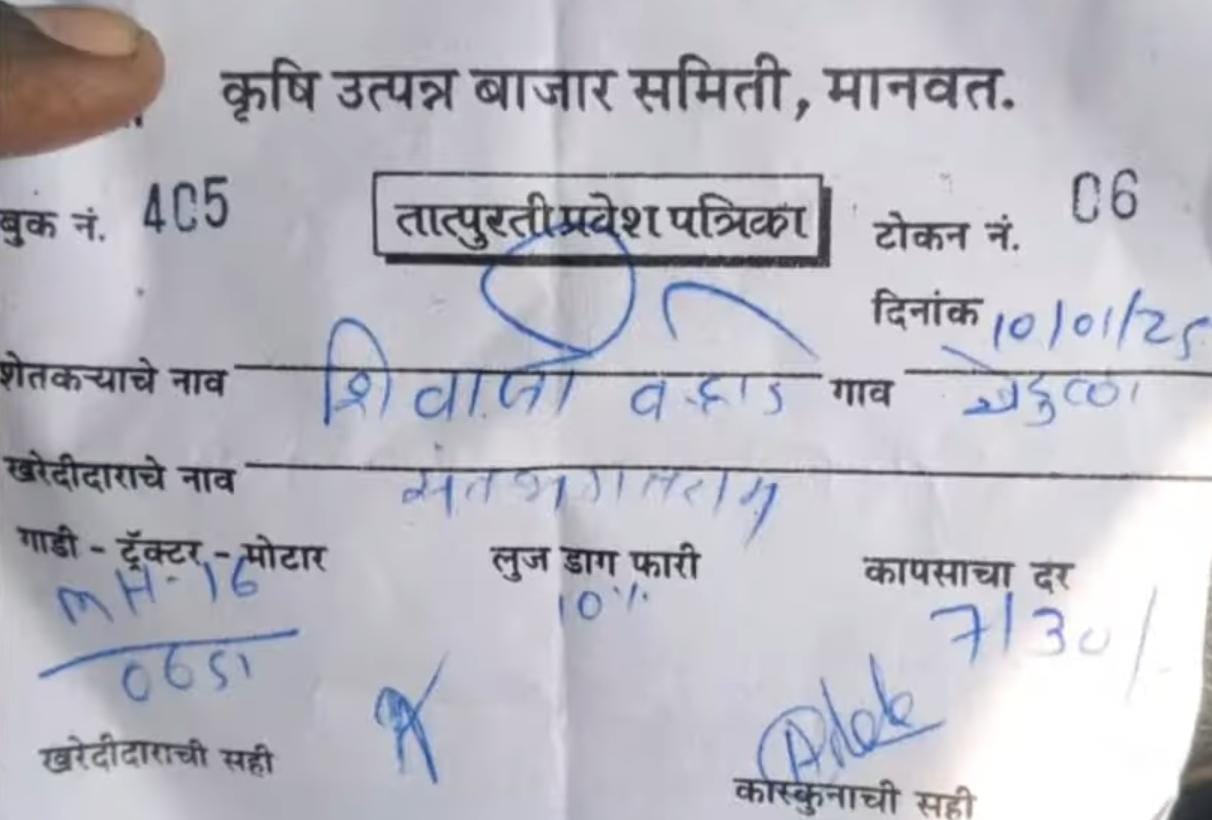 कृषि उत्पन्न बाजार समिती, मानवत.
बुक नं. 405 तात्पुरती प्रवेश पत्रिका टोकन नं. 06
दिनांक 10/01/25
शेतकऱ्याचे नाव शिवाजी गाव
खरेदीदाराचे नाव
गाडी - ट्रॅक्टर - मोटार लुज डाग फारी कापसाचा दर
MH-16 10% 7130/-
0651
खरेदीदाराची सही
कारकुनाची सही